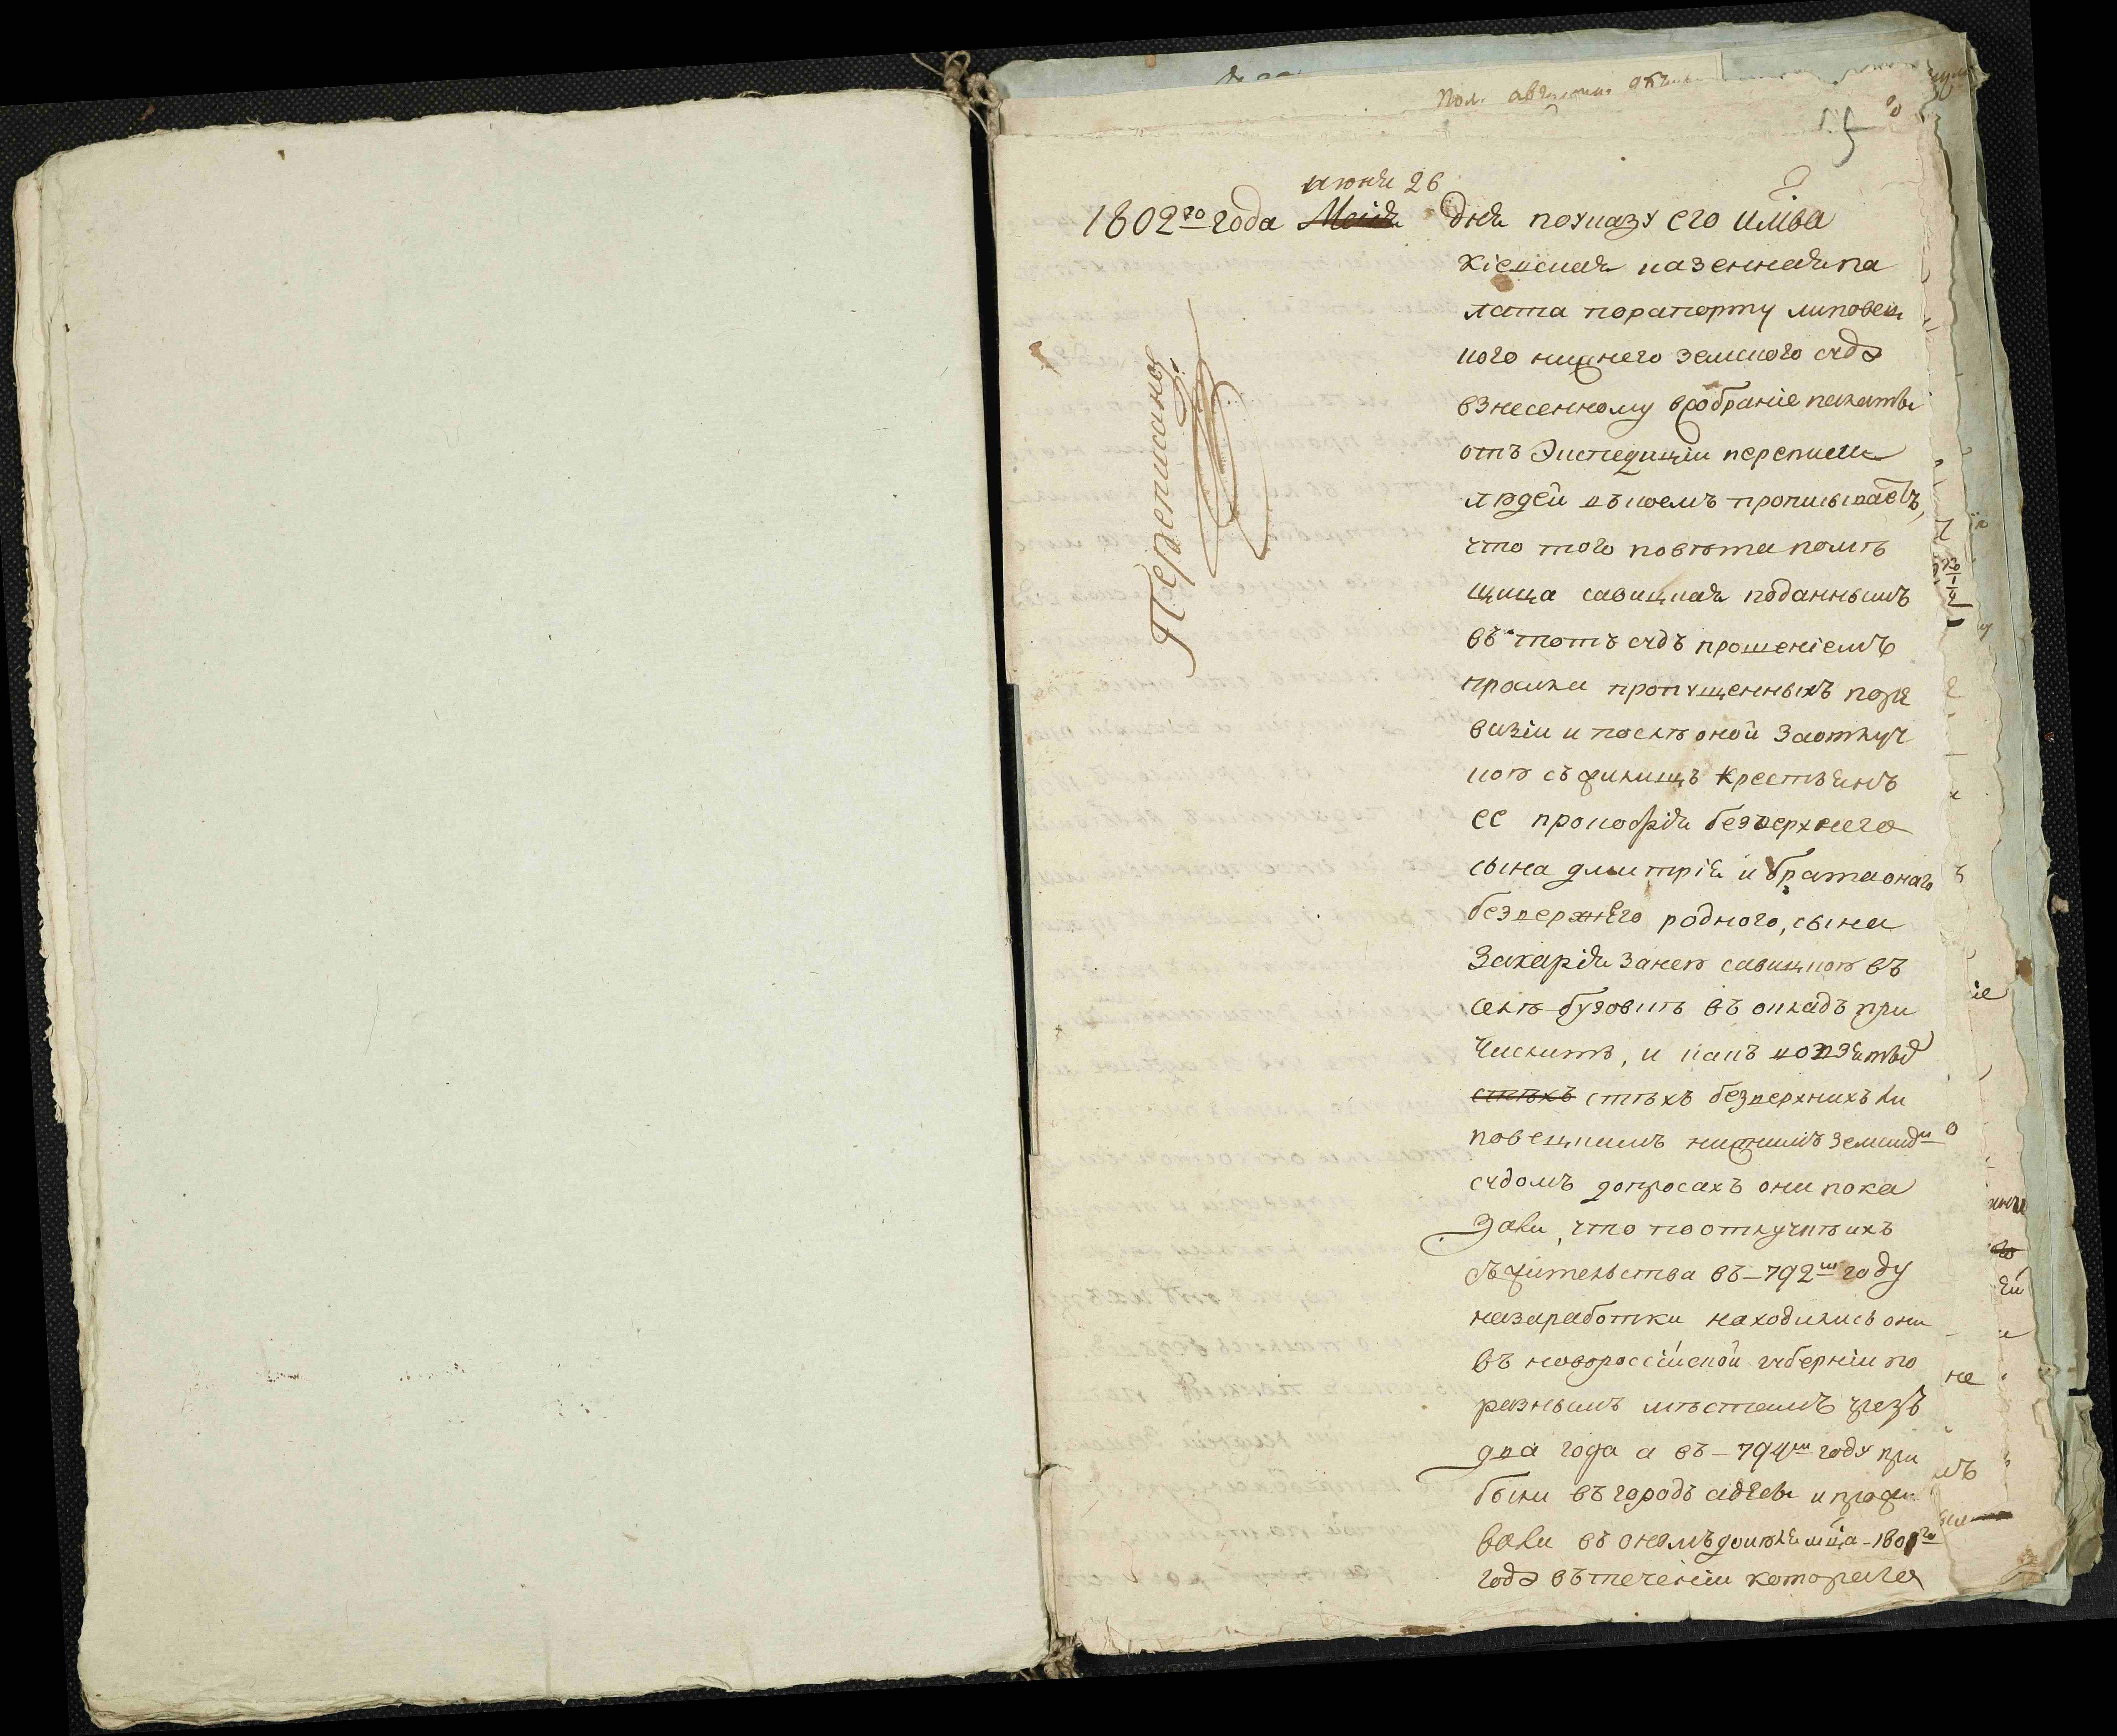 55
июня 26
1802го года Маія дня поуказу его имва
Кіевская казенная па
лата порапорту липовец
кого нижнего земского суда
взнесенному всобраніе палаты
отъ Экспедиціи переписи
людей въкоемъ прописываетъ,
что того повѣта помѣ
щица савицкая поданнымъ
въ тотъ судъ прошеніемъ
просила пропущенныхъ поре
визіи и послѣ оной Заотлуч
кою съ жилищъ крестьянъ
ее прокофія безверхнего
сына дмитрія и брата онаго
безверхнего родного, сына
Захарія занею савицкою въ
селѣ бузовкѣ въ окладъ при
числить, и какъ
стѣхъ стѣхъ безверхнихъ ли
повецкимъ нижнимъ земскимъ
судомъ допросахъ они пока
зали, что поотлучкѣ ихъ
съ жительства въ-792м году
назаработки находились они
въ новороссійской губерніи по
разнымъ мѣстамъ чрезъ
два года а въ-794м году при
были въ городъ адесъ и прожи
вали въ ономъ доиюля мца-1801го
года въ теченіи которага
Переписано